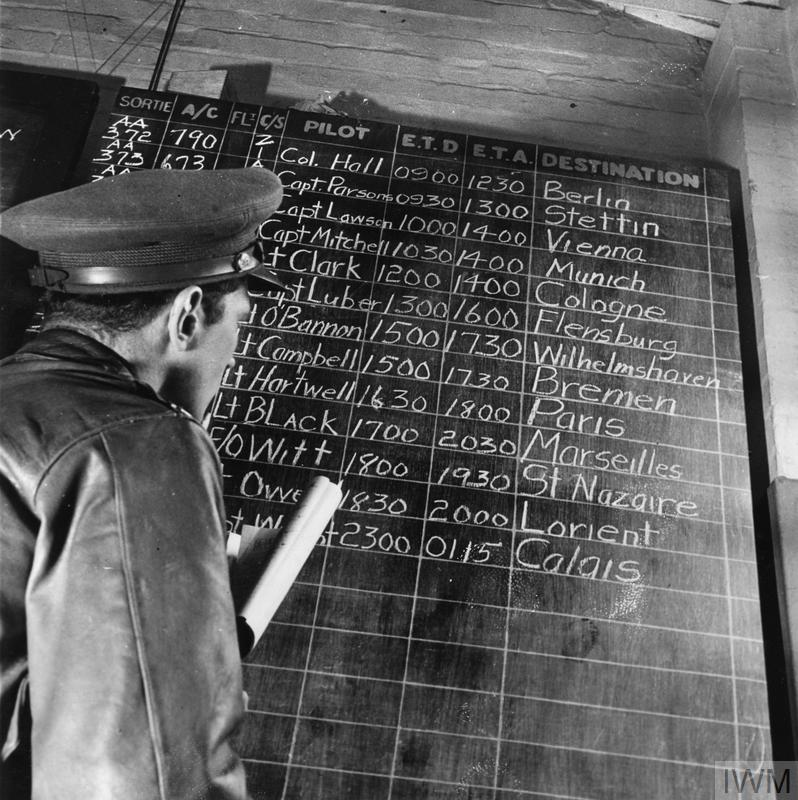 N
SORTIE A/C FLT C/S PILOT E.T.D E.T.A. DESTINATION
AA 372 790 Z Col. Hall 0900 1230 Berlin
AA 373 673 A Capt. Parsons 0930 1300 Stettin
AA Capt Lawson 1000 1400 Vienna
Capt Mitchell 1030 1400 Munich
t Clark 1200 1400 Cologne
Capt Luber 1300 1600 Flensburg
Lt O'Bannon 1500 1730 Wilhelmshaven
Lt Campbell 1500 1730 Bremen
Lt Hartwell 1630 1800 Paris
Lt BLAck 1700 2030 Marseilles
F/O Witt 1800 1930 St Nazaire
1830 2000 Lorient
2300 0115 Calais
IWM